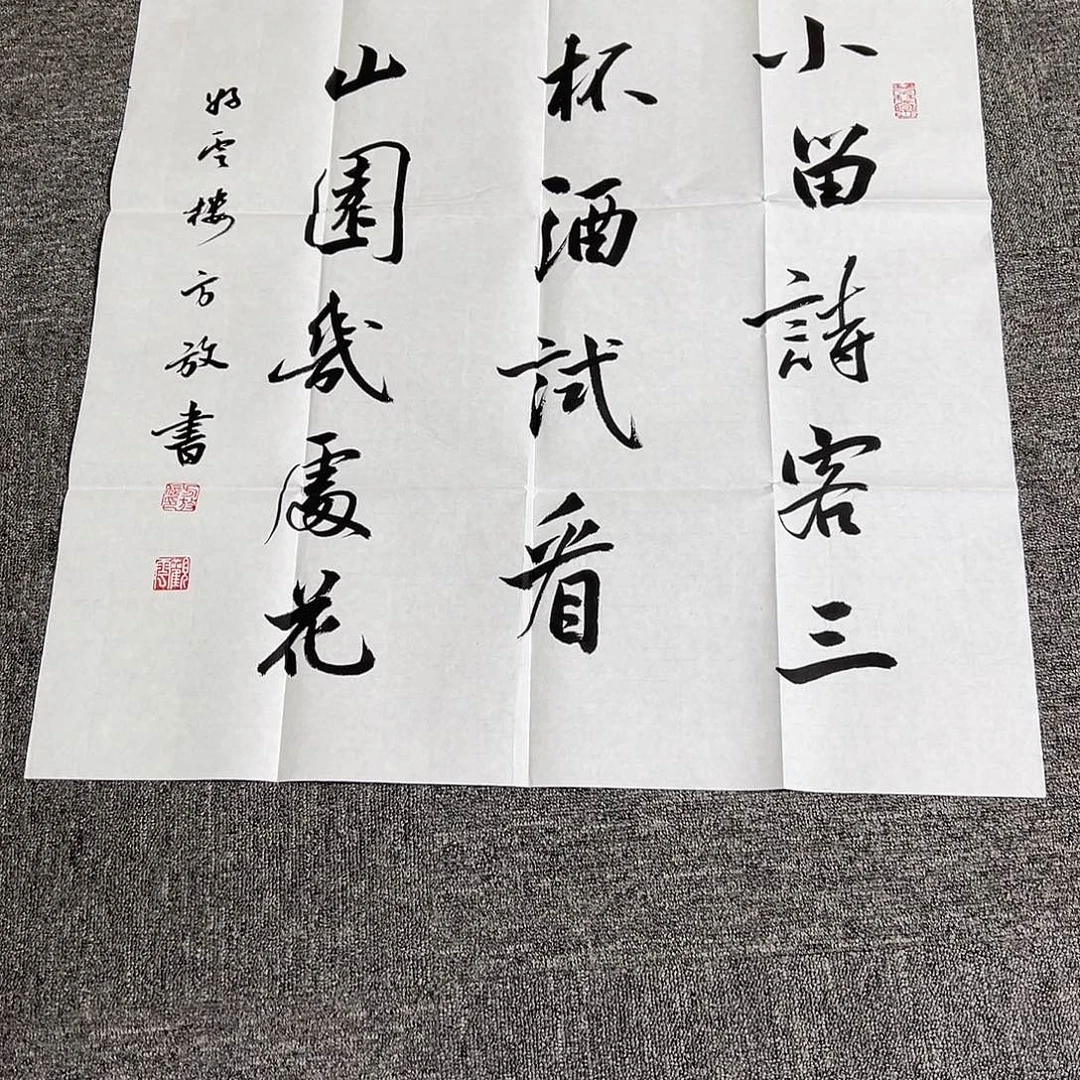 小留詩客三
杯酒試看
山園幾處花
好雲樓方放書